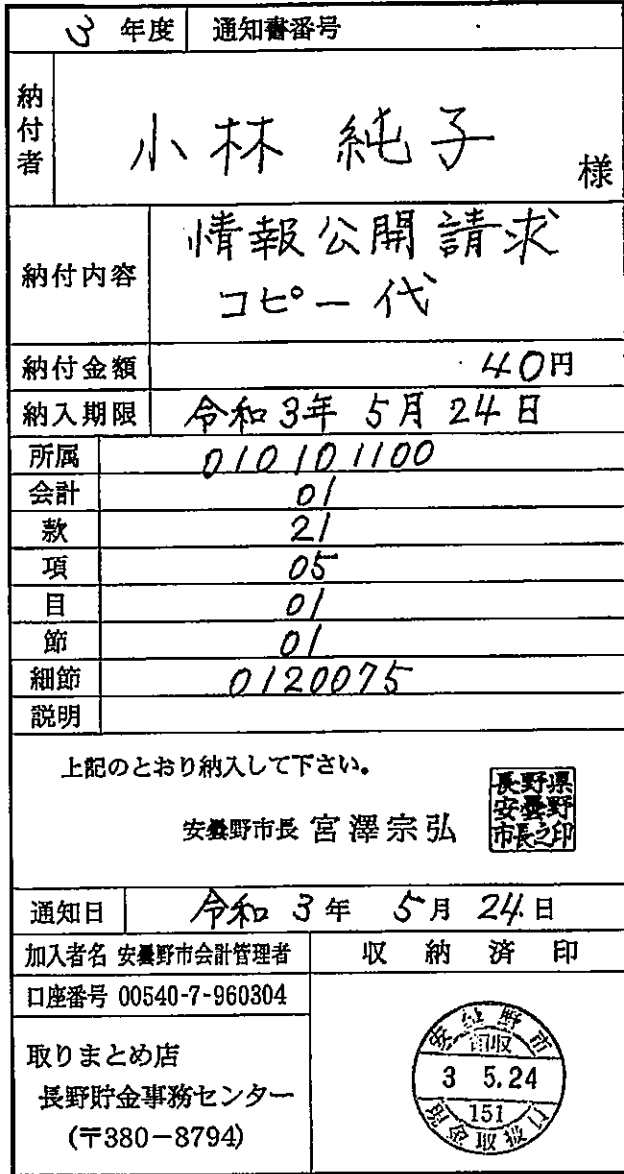 3 年度 通知書番号
納付者 小林 純子 様
納付内容 情報公開請求
コピー代
納付金額 40円
納入期限 令和3年 5月 24日
所属 010101100
会計 01
款 21
項 05
目 01
節 01
細節 0120075
説明
上記のとおり納入して下さい。
安曇野市長 宮澤宗弘
長野県
安曇野
市長之印
通知日 令和 3年 5月 24日
加入者名 安曇野市会計管理者
口座番号 00540-7-960304
取りまとめ店
長野貯金事務センター
(〒380-8794)
収納済印
安曇野市
領収
3 5.24
151
現金取扱口